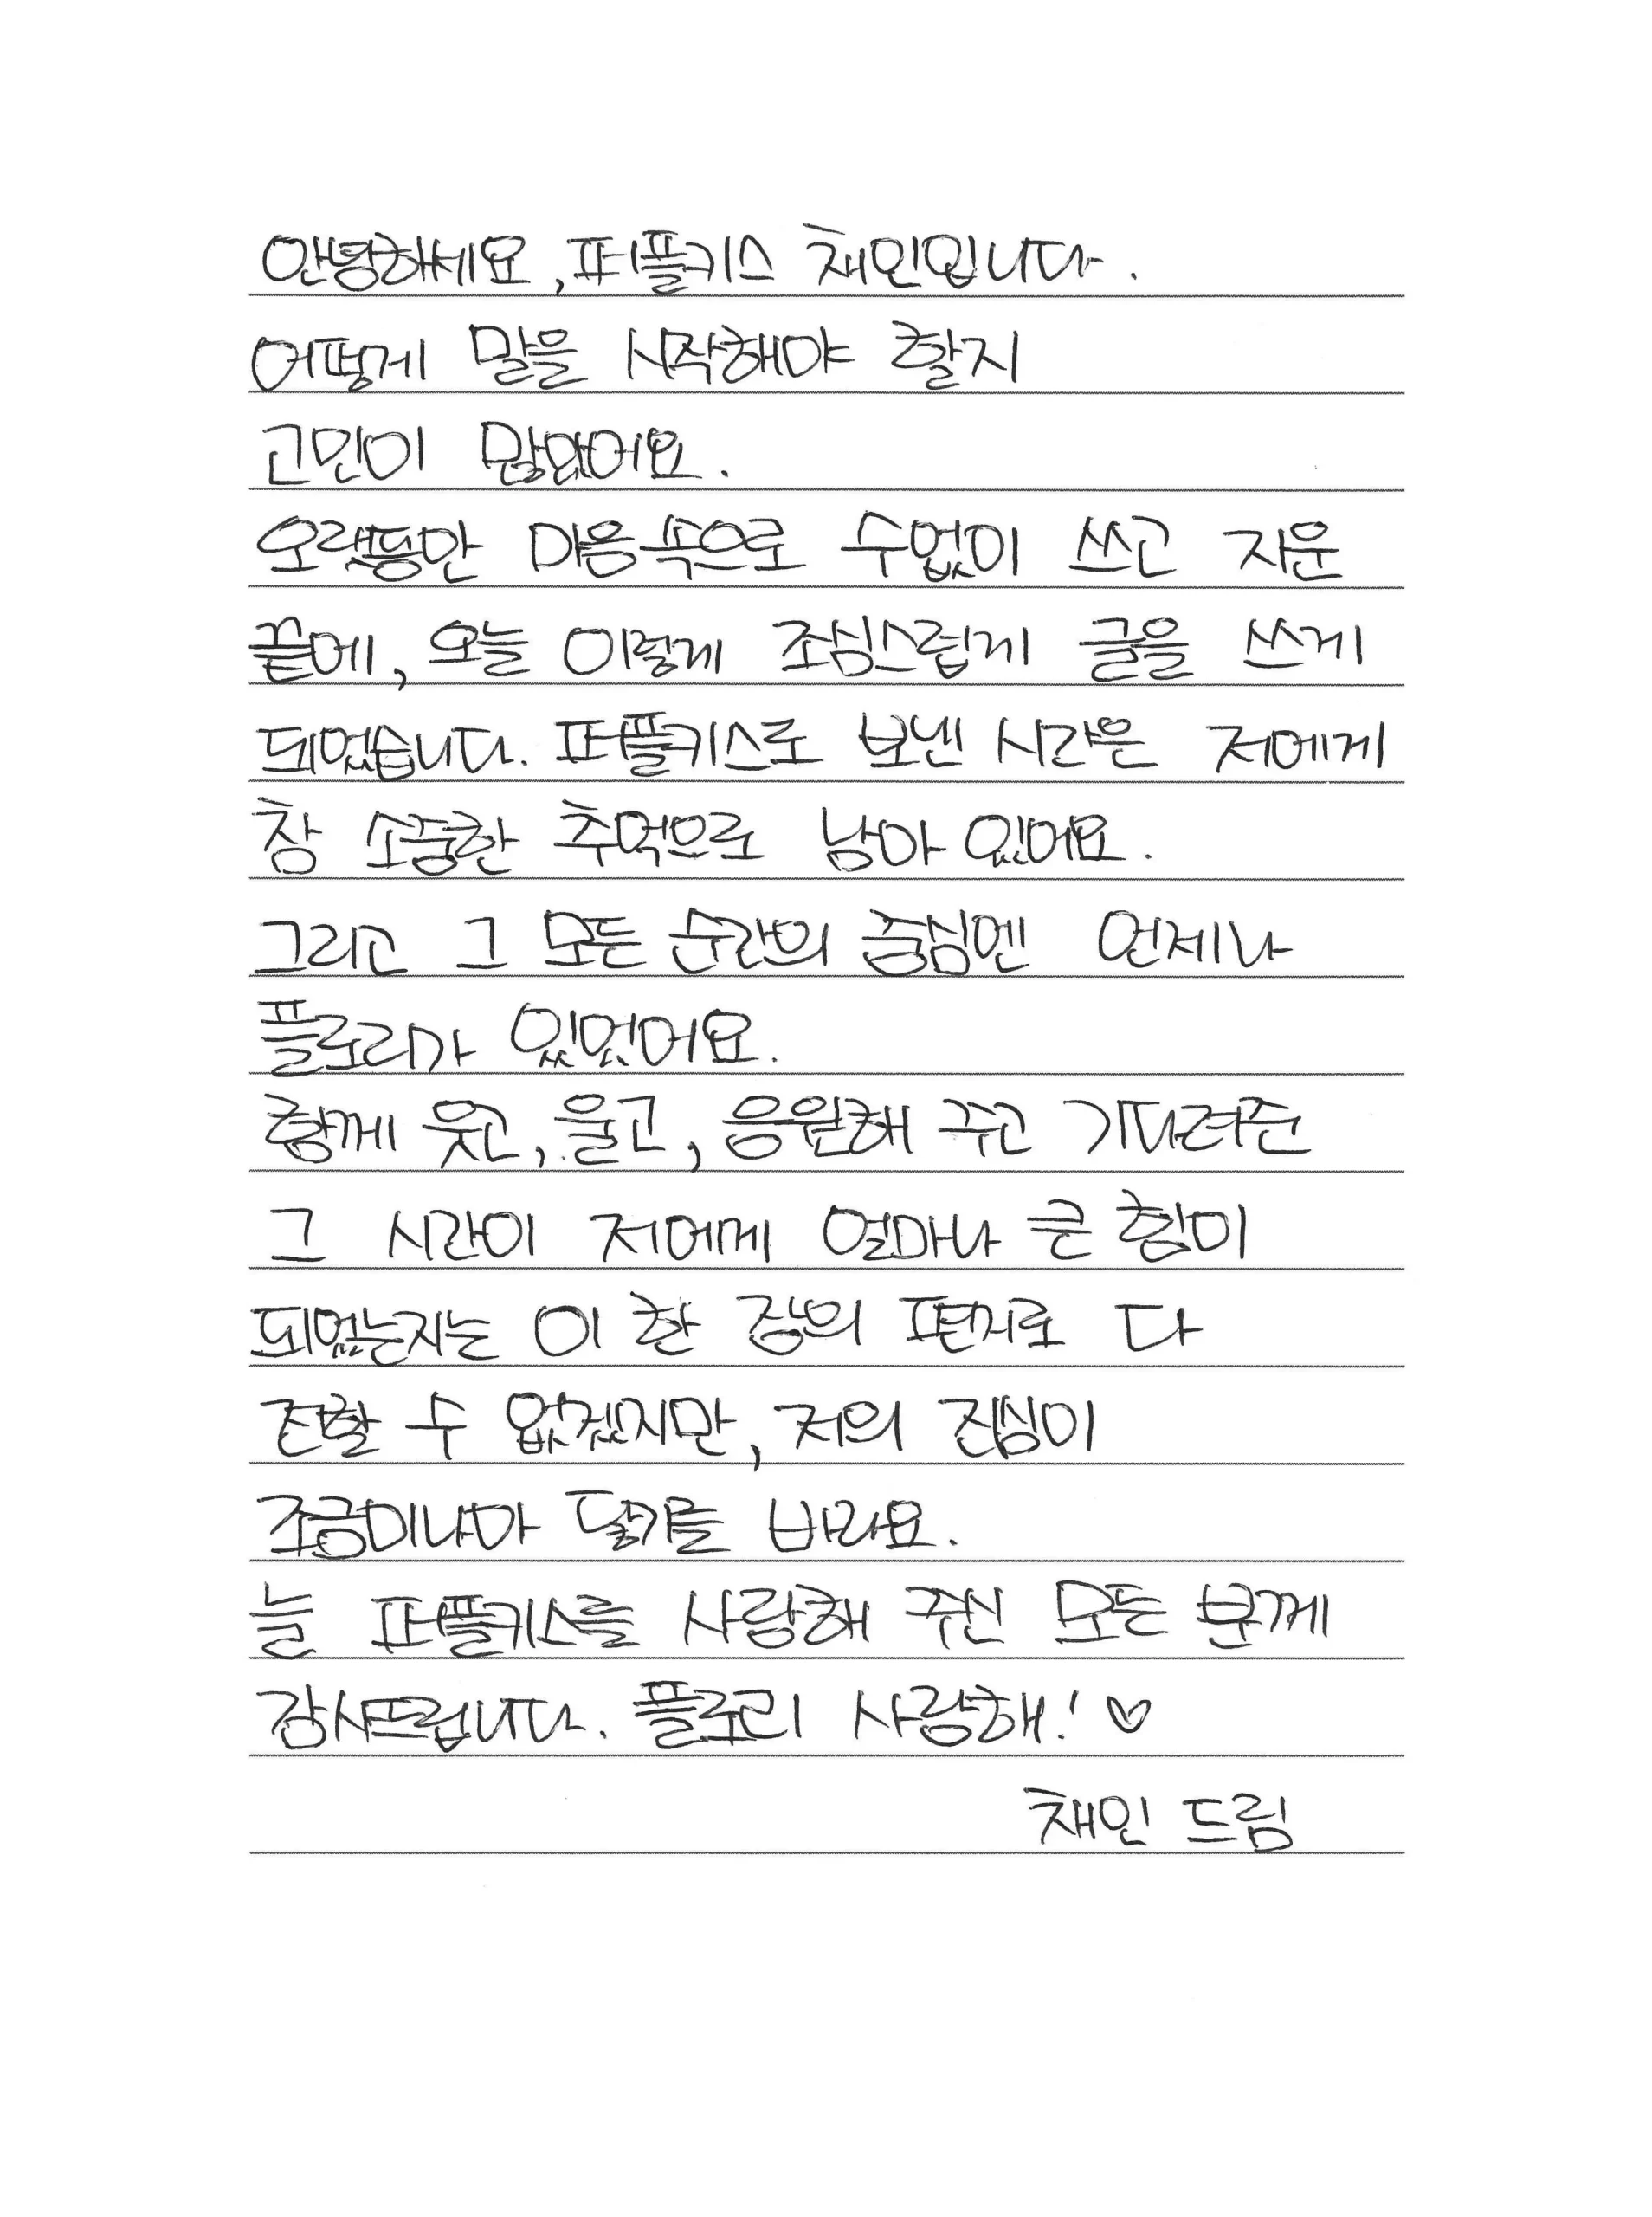 안녕하세요, 퍼플키스 채인입니다.
어떻게 말을 시작해야 할지
고민이 많았어요.
오랫동안 마음속으로 수없이 쓰고 지운
끝에, 오늘 이렇게 조심스럽게 글을 쓰게
되었습니다. 퍼플키스로 보낸 시간은 저에게
참 소중한 추억으로 남아 있어요.
그리고 그 모든 순간의 중심엔 언제나
플로리가 있었어요.
함께 웃고, 울고, 응원해 주고 기다려준
그 시간이 저에게 얼마나 큰 힘이
되었는지는 이 한 장의 편지로 다
전할 수 없겠지만, 저의 진심이
조금이나마 닿기를 바라요.
늘 퍼플키스를 사랑해 주신 모든 분께
감사드립니다. 플로리 사랑해! ♡
채인 드림